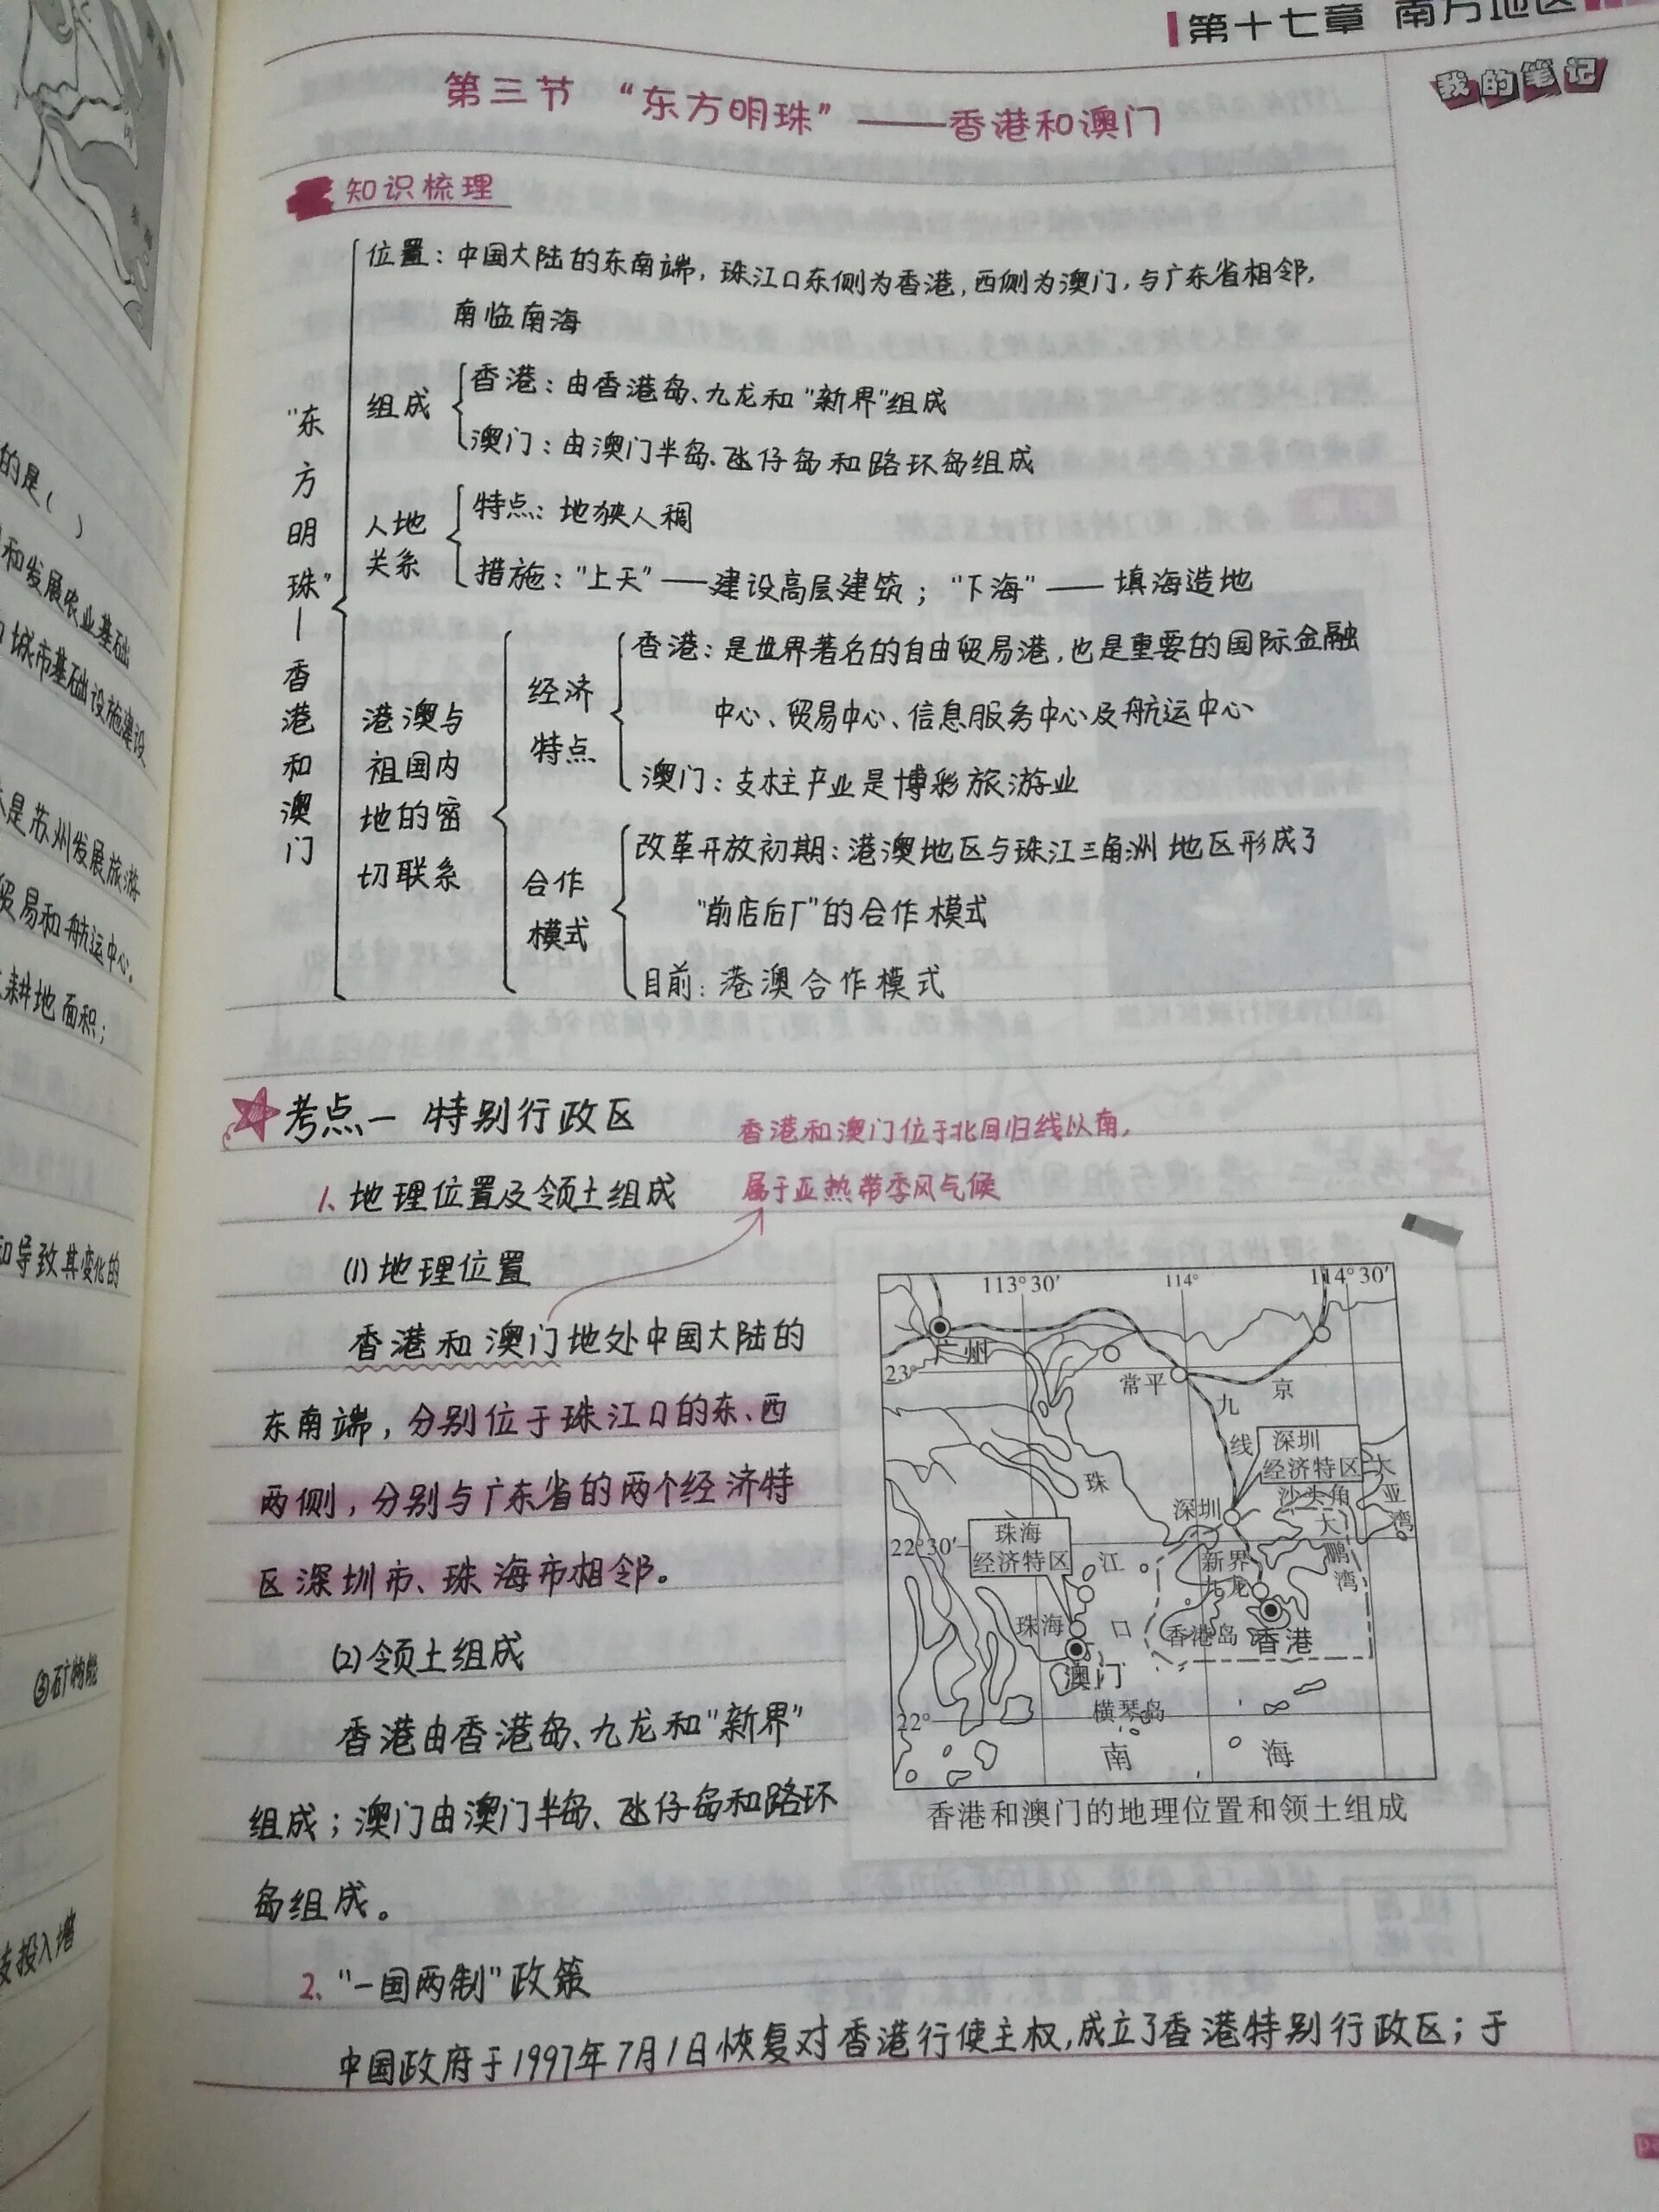 第十七章 南方地区
我的笔记
第三节 “东方明珠”——香港和澳门
知识梳理
“东方明珠”—香港和澳门
位置：中国大陆的东南端，珠江口东侧为香港，西侧为澳门，与广东省相邻，
南临南海
组成
香港：由香港岛、九龙和“新界”组成
澳门：由澳门半岛、氹仔岛和路环岛组成
人地
关系
特点：地狭人稠
措施：“上天”——建设高层建筑；“下海”——填海造地
港澳与
祖国内
地的密
切联系
经济
特点
香港：是世界著名的自由贸易港，也是重要的国际金融
中心、贸易中心、信息服务中心及航运中心
澳门：支柱产业是博彩旅游业
合作
模式
改革开放初期：港澳地区与珠江三角洲地区形成了
“前店后厂”的合作模式
目前：港澳合作模式
考点一 特别行政区
香港和澳门位于北回归线以南，
属于亚热带季风气候
1、地理位置及领土组成
(1)地理位置
香港和澳门地处中国大陆的
东南端，分别位于珠江口的东、西
两侧，分别与广东省的两个经济特
区深圳市、珠海市相邻。
(2)领土组成
香港由香港岛、九龙和“新界”
组成；澳门由澳门半岛、氹仔岛和路环
岛组成。
113°30′ 114° 114°30′
广州
23°
常平
京
九
线
深圳
经济特区
大
亚
湾
沙头角
深圳
大
鹏
湾
珠
江
口
22°30′
珠海
经济特区
新界
九龙
珠海
香港岛
香港
澳门
横琴岛
22°
南 海
香港和澳门的地理位置和领土组成
2、“一国两制”政策
中国政府于1997年7月1日恢复对香港行使主权，成立了香港特别行政区；于
的是（ ）
和发展农业基础
城市基础设施建设
是苏州发展旅游
贸易和航运中心。
耕地面积；
和导致其变化的
③矿物能
支投入增